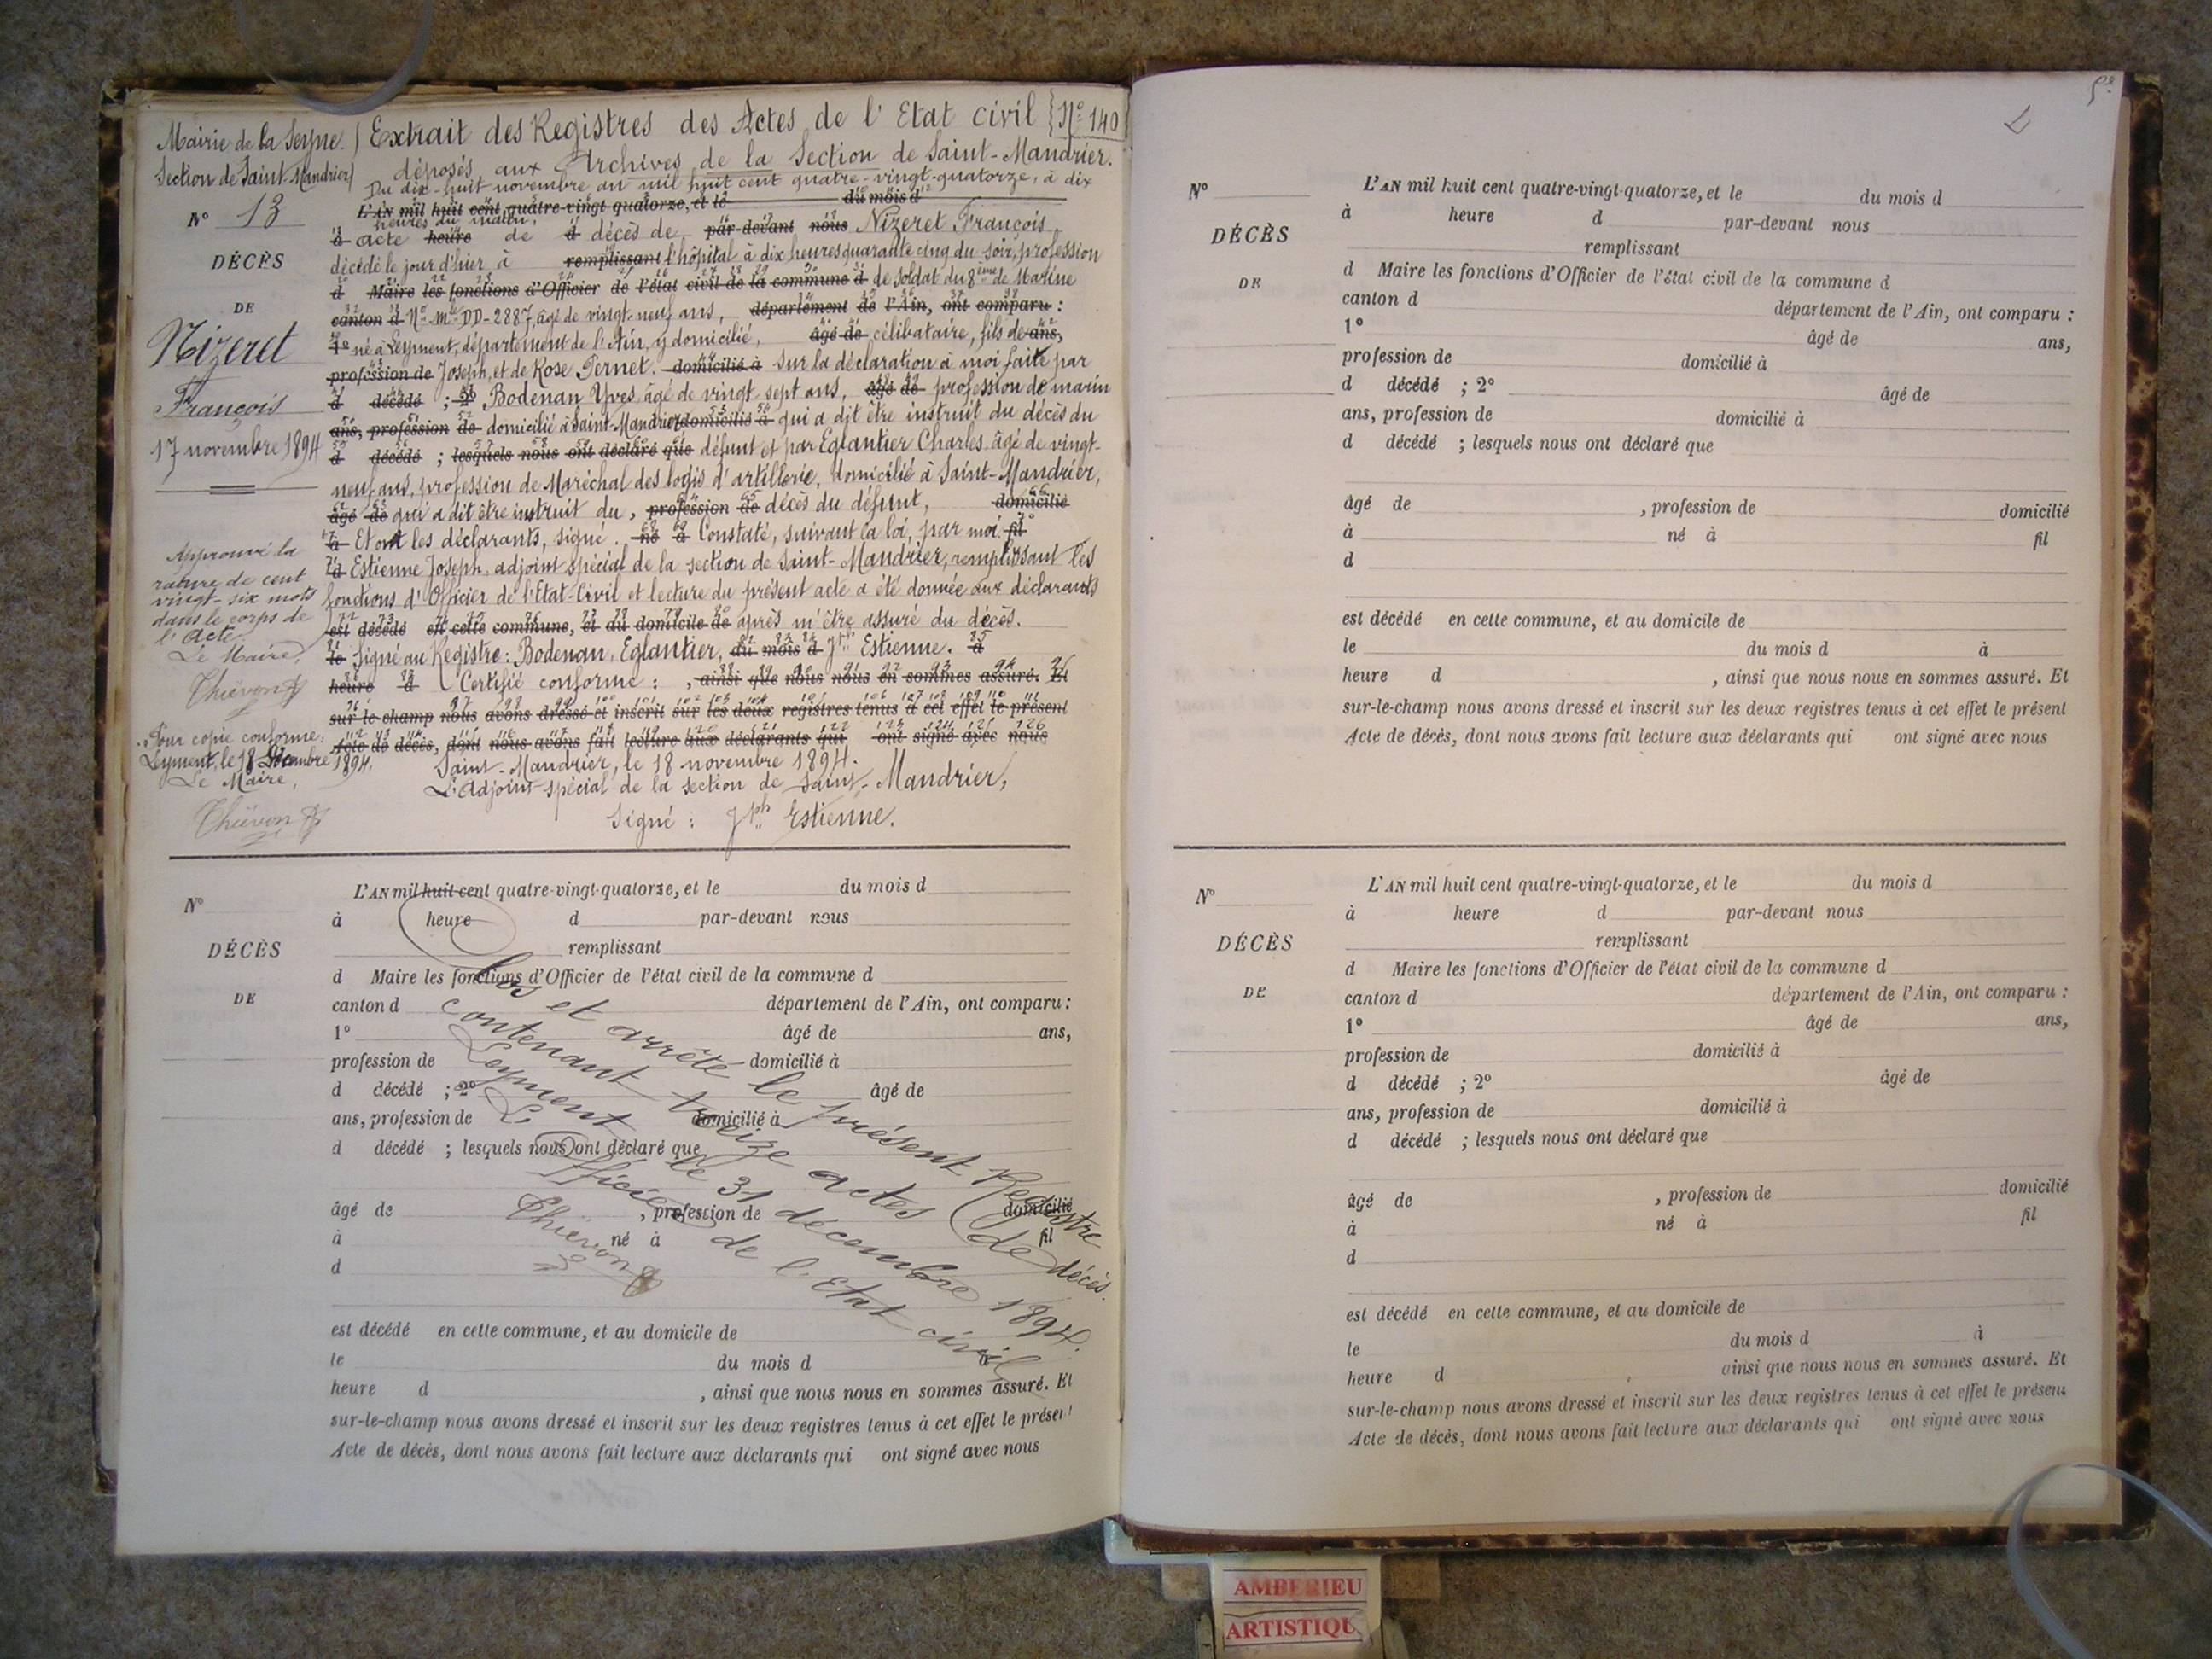 Mairie de la Seyne.
Section de Saint-Mandrier
Extrait des Registres des Actes de l'Etat civil
N° 140
déposés aux Archives de la Section de Saint-Mandrier.
Du dix-huit novembre an mil huit cent quatre-vingt-quatorze, à dix
L'AN mil huit cent quatre-vingt quatorze, et le du mois d
heures du matin,
N° 13
DÉCÈS
DE
Nizeret
François
17 novembre 1894
à acte heure de d décès de par-devant nous Nizeret François
décédé le jour d'hier, à remplissant l'hôpital à dix heures quarante cinq du soir, profession
d Maire les fonctions d'Officier de l'état civil de la commune d de soldat du 8ème de Marine
canton d N° mle DD-2887, âgé de vingt-neuf ans, département de l'Ain, ont comparu :
1° né à Leyment, département de l'Ain, y domicilié, âgé de célibataire, fils de ans,
profession de Joseph, et de Rose Pernet. domicilié à Sur la déclaration à moi faite par
d décédé ; 2° Bodenan Yves âgé de vingt sept ans, âgé de profession de marin
ans, profession de domicilié à Saint-Mandrier domicilié à qui a dit être instruit du décès du
d décédé ; lesquels nous ont déclaré que défunt et par Eglantier Charles âgé de vingt-
neuf ans, profession de Maréchal des logis d'artillerie, domicilié à Saint-Mandrier,
âgé de qui a dit être instruit du , profession de décès du défunt, domicilié
à Et ont les déclarants, signé. né à Constaté, suivant la loi, par moi fil
d Estienne Joseph, adjoint spécial de la section de Saint-Mandrier, remplissant les
fonctions d'Officier de l'Etat-Civil et lecture du présent acte a été donnée aux déclarants
est décédé en cette commune, et au domicile de après m'être assuré du décès.
le Signé au Registre : Bodenan, Eglantier, du mois d Jph Estienne. à
heure d Certifié conforme : , ainsi que nous nous en sommes assuré. Et
sur-le-champ nous avons dressé et inscrit sur les deux registres tenus à cet effet le présent
Acte de décès, dont nous avons fait lecture aux déclarants qui ont signé avec nous
Saint-Mandrier, le 18 novembre 1894.
L'Adjoint spécial de la section de Saint-Mandrier,
Signé : Jph Estienne.
Approuvé la
rature de cent
vingt-six mots
dans le corps de
l'acte.
Le Maire,
Thiévon
Pour copie conforme.
Leyment, le 18 Décembre 1894.
Le Maire,
Thiévon
N°
DÉCÈS
DE
L'AN mil huit cent quatre-vingt-quatorze, et le du mois d
à heure d par-devant nous
remplissant
d Maire les fonctions d'Officier de l'état civil de la commune d
canton d département de l'Ain, ont comparu :
1° âgé de ans,
profession de domicilié à
d décédé ; 2° âgé de
ans, profession de domicilié à
d décédé ; lesquels nous ont déclaré que
âgé de , profession de domicilié
à né à fil
d
est décédé en cette commune, et au domicile de
le du mois d à
heure d , ainsi que nous nous en sommes assuré. Et
sur-le-champ nous avons dressé et inscrit sur les deux registres tenus à cet effet le présent
Acte de décès, dont nous avons fait lecture aux déclarants qui ont signé avec nous
Clos et arrêté le présent Registre de décès.
contenant treize actes
Leyment le 31 décembre 1894.
L'Officier de l'Etat civil
Thiévon
N°
DÉCÈS
DE
L'AN mil huit cent quatre-vingt-quatorze, et le du mois d
à heure d par-devant nous
remplissant
d Maire les fonctions d'Officier de l'état civil de la commune d
canton d département de l'Ain, ont comparu :
1° âgé de ans,
profession de domicilié à
d décédé ; 2° âgé de
ans, profession de domicilié à
d décédé ; lesquels nous ont déclaré que
âgé de , profession de domicilié
à né à fil
d
est décédé en cette commune, et au domicile de
le du mois d à
heure d , ainsi que nous nous en sommes assuré. Et
sur-le-champ nous avons dressé et inscrit sur les deux registres tenus à cet effet le présent
Acte de décès, dont nous avons fait lecture aux déclarants qui ont signé avec nous
N°
DÉCÈS
DE
L'AN mil huit cent quatre-vingt-quatorze, et le du mois d
à heure d par-devant nous
remplissant
d Maire les fonctions d'Officier de l'état civil de la commune d
canton d département de l'Ain, ont comparu :
1° âgé de ans,
profession de domicilié à
d décédé ; 2° âgé de
ans, profession de domicilié à
d décédé ; lesquels nous ont déclaré que
âgé de , profession de domicilié
à né à fil
d
est décédé en cette commune, et au domicile de
le du mois d à
heure d ainsi que nous nous en sommes assuré. Et
sur-le-champ nous avons dressé et inscrit sur les deux registres tenus à cet effet le présent
Acte de décès, dont nous avons fait lecture aux déclarants qui ont signé avec nous
AMBERIEU
ARTISTIQU